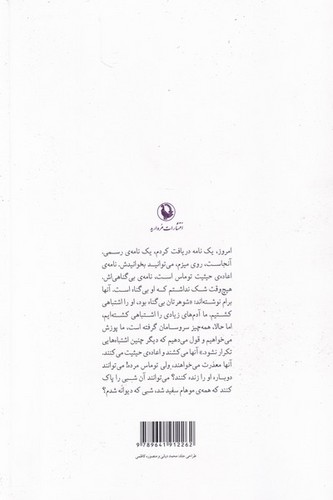 انتشارات مروارید
امروز، یک نامه دریافت کردم، یک نامه‌ی رسمی.
آنجاست، روی میزم، می‌توانید بخوانیدش. نامه‌ی
اعاده‌ی حیثیت توماس است، نامه‌ی بی‌گناهی‌اش.
هیچ‌وقت شک نداشتم که او بی‌گناه است. آنها
برام نوشته‌اند: «شوهرتان بی‌گناه بود، او را اشتباهی
کشتیم. ما آدم‌های زیادی را اشتباهی کشته‌ایم،
اما حالا، همه‌چیز سروسامان گرفته است، ما پوزش
می‌خواهیم و قول می‌دهیم که دیگر چنین اشتباه‌هایی
تکرار نشود.» آنها می‌کشند و اعاده‌ی حیثیت می‌کنند.
آنها معذرت می‌خواهند، ولی توماس مرده! می‌توانند
دوباره او را زنده کنند؟ می‌توانند آن شبی را پاک
کنند که همه‌ی موهام سفید شد، شبی که دیوانه شدم؟
9 789641 912262